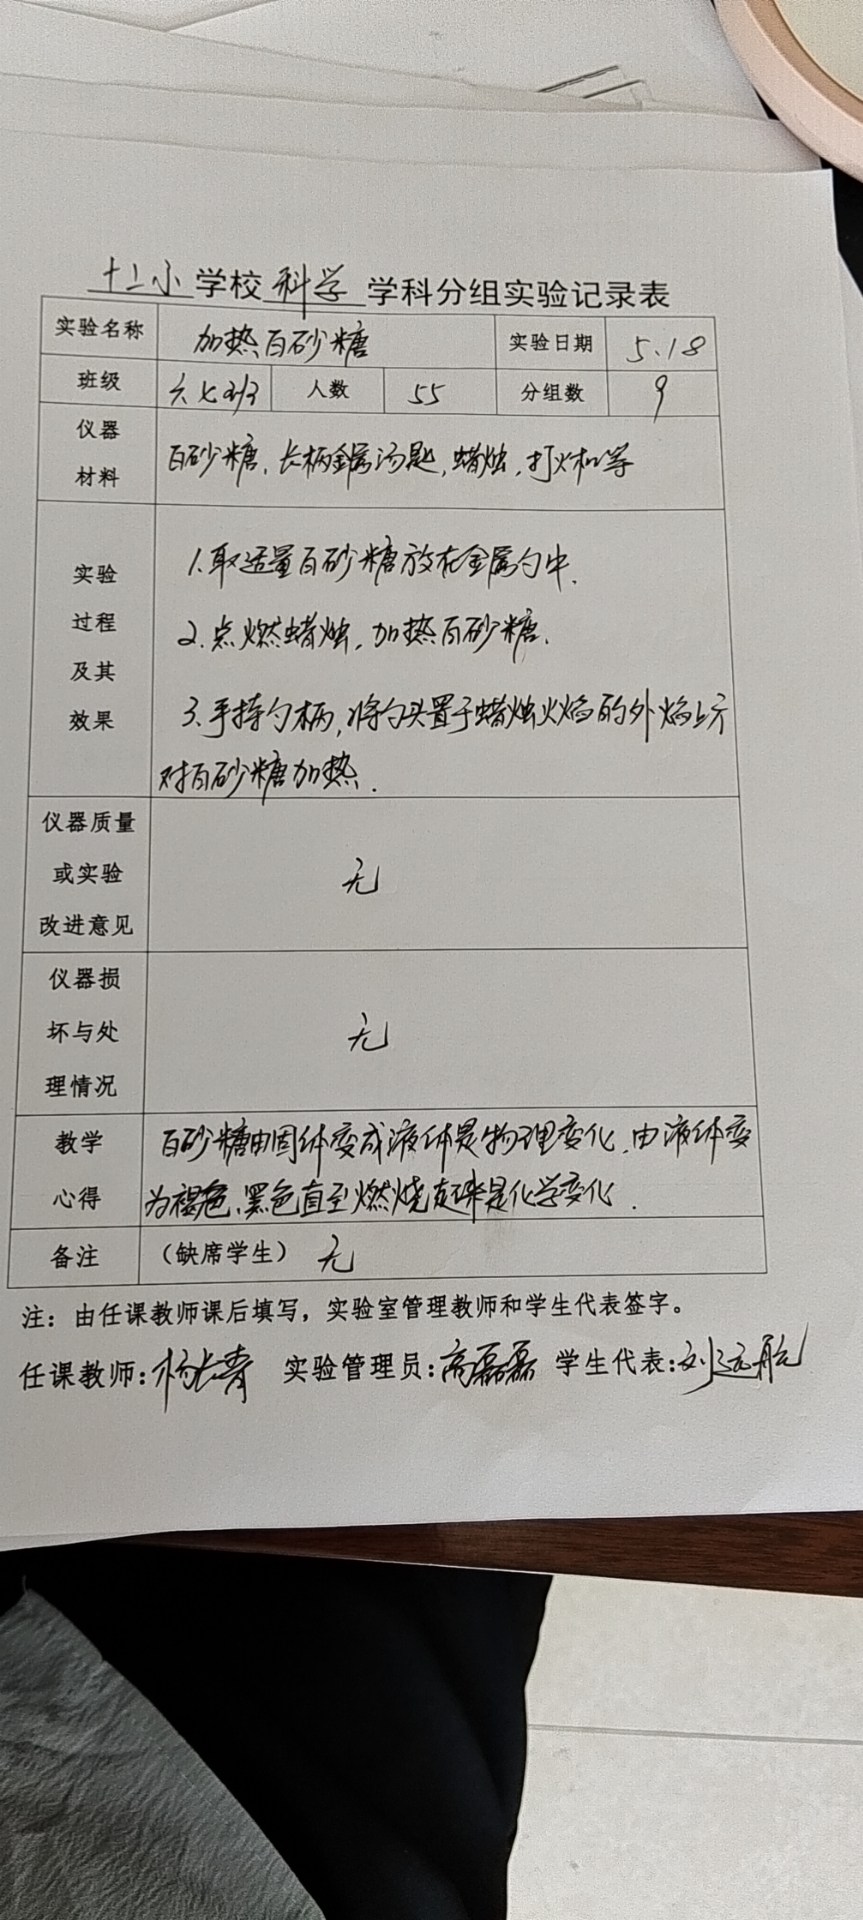 十二小学校科学学科分组实验记录表
实验名称 加热白砂糖 实验日期 5.18
班级 六七班 人数 55 分组数 9
仪器
材料
白砂糖,长柄金属汤匙,蜡烛,打火机等
实验
过程
及其
效果
1.取适量白砂糖放在金属勺中.
2.点燃蜡烛,加热白砂糖.
3.手持勺柄,将勺头置于蜡烛火焰的外焰上方
对白砂糖加热.
仪器质量
或实验
改进意见
无
仪器损
坏与处
理情况
无
教学
心得
白砂糖由固体变成液体是物理变化,由液体变
为褐色、黑色直至燃烧起来是化学变化.
备注 (缺席学生) 无
注:由任课教师课后填写,实验室管理教师和学生代表签字。
任课教师:杨长青 实验管理员:高磊磊 学生代表:刘远航